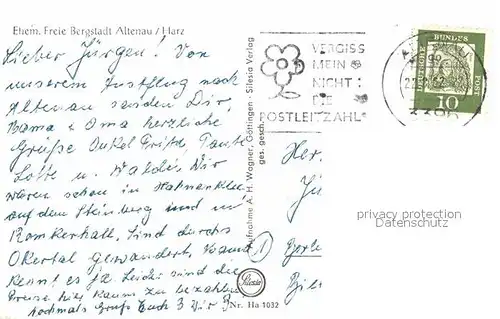 Ehem. Freie Bergstadt Altenau / Harz
Lieber Jürgen! Von
unserem Ausflug nach
Altenau senden Dir,
Mama u Oma herzliche
Grüße Onkel Fritz, Tante
Lotte u. Waldis. Wir
waren schon in Hahnenklee
auf dem Steinberg und in
Romkerhall, sind durchs
Okertal gewandert,
kennt es ja. Leider sind die
Preise hier kaum zu bezahlen.
Nochmals Gruß Euch 3 Wir 3
Aufnahme A. H. Wagner, Göttingen - Silesia Verlag
ges. gesch.
VERGISS
MEIN
NICHT:
DIE
POSTLEITZAHL
DEUTSCHE
BUNDES
10
Her
Jü
privacy protection
Datenschutz
Silesia
Nr. Ha 1032